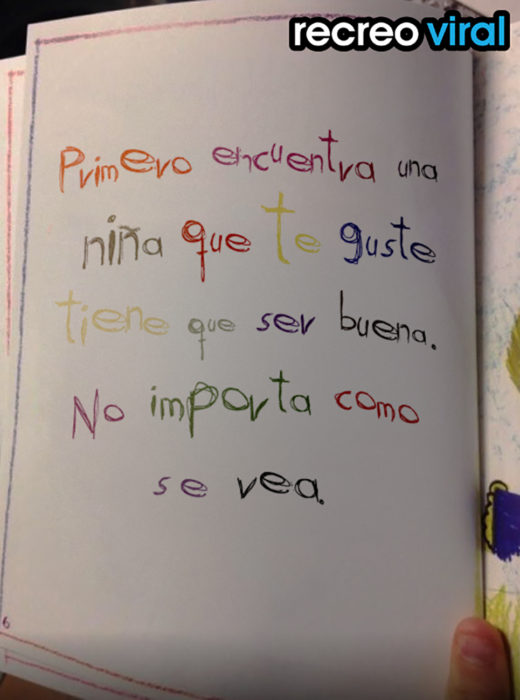 recreo viral
Primero encuentra una
niña que te guste
tiene que ser buena.
No importa como
se vea.
6